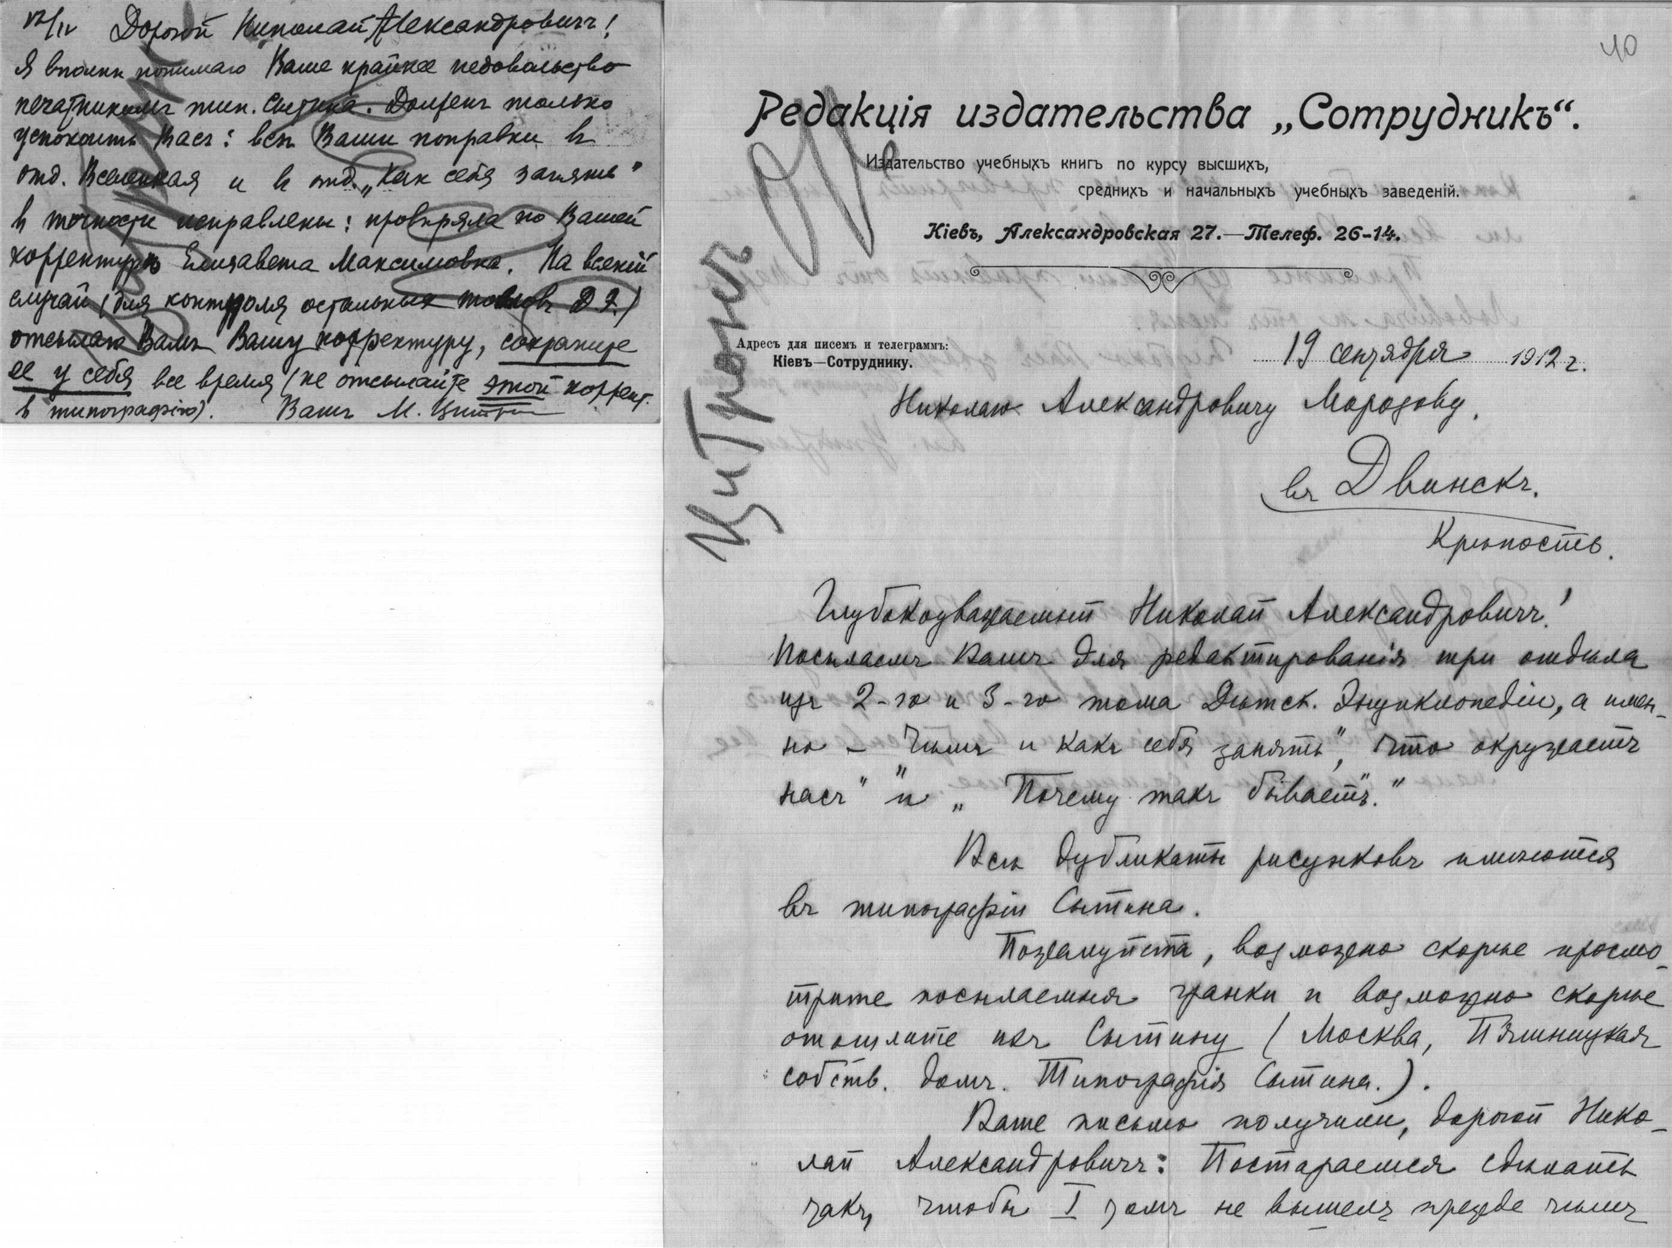 12/IV Дорогой Николай Александровичъ!
Я вполнѣ понимаю Ваше крайнее недовольство
печатникомъ тип. Сытина. Долженъ только
успокоить Васъ: всѣ Ваши поправки въ
отд. Вселенная и въ отд. „Какъ себя занять"
въ точности исправлены: провѣряла по Вашей
корректурѣ Елизавета Максимовна. На всякій
случай (для контроля остальныхъ томовъ Д Э)
отсылаю Вамъ Вашу корректуру, сохраните
ее у себя все время (не отсылайте этой коррект.
в типографію). Вашъ М. Цитронъ
40
Редакція издательства „Сотрудникъ“.
Издательство учебныхъ книгъ по курсу высшихъ,
среднихъ и начальныхъ учебныхъ заведеній.
Кіевъ, Александровская 27.—Телеф. 26-14.
Цитронъ
Адресъ для писемъ и телеграммъ:
Кіевъ—Сотруднику.
19 сентября 1912 г.
Николаю Александровичу Морозову.
въ Двинскъ.
Крѣпость.
Глубокоуважаемый Николай Александровичъ!
Посылаемъ Вамъ для редактированія три отдѣла
изъ 2-го и 3-го тома Дѣтск. Энциклопедіи, а имен-
но – „Чѣмъ и какъ себя занять", „Что окружаетъ
насъ" и „Почему такъ бываетъ."
Всѣ дубликаты рисунковъ имѣются
въ типографіи Сытина.
Пожалуйста, возможно скорѣе просмо-
трите посылаемыя гранки и возможно скорѣе
отошлите ихъ Сытину (Москва, Пятницкая
собств. домъ. Типографія Сытина.).
Ваше письмо получили, дорогой Нико-
лай Александровичъ: Постараемся сдѣлать
такъ, чтобы I томъ не вышелъ прежде чѣмъ